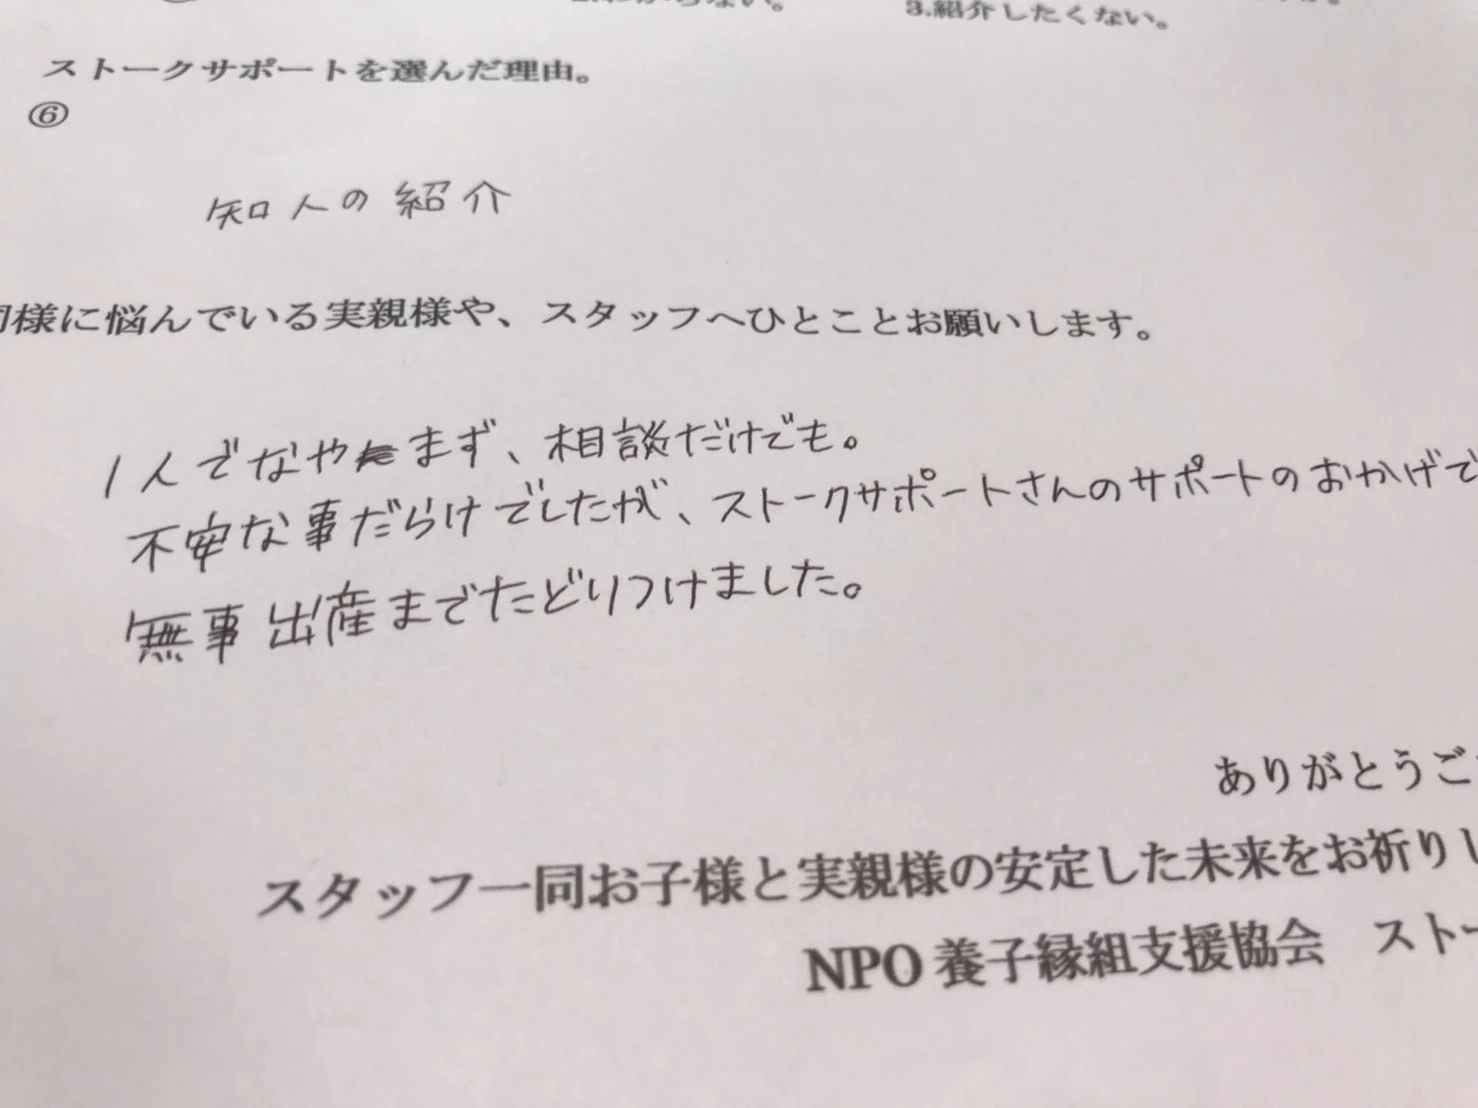 3.紹介したくない。
ストークサポートを選んだ理由。
⑥
知人の紹介
様に悩んでいる実親様や、スタッフへひとことお願いします。
1人でなやまず、相談だけでも。
不安な事だらけでしたが、ストークサポートさんのサポートのおかげで
無事出産までたどりつけました。
ありがとうご
スタッフ一同お子様と実親様の安定した未来をお祈りし
NPO 養子縁組支援協会　ストー